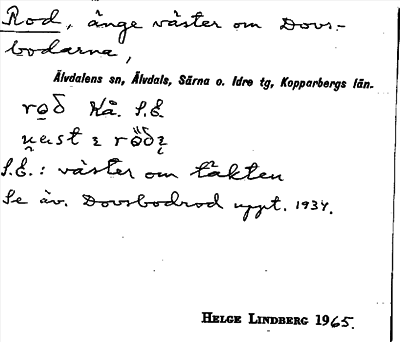 Rod, änge väster om Dovs-
bodarna,
Älvdalens sn, Älvdals, Särna o. Idre tg, Kopparbergs län.
roð Kå. S.E.
S.E.: väster om täkten
Se äv. Dovsbodrod uppt. 1934.
HELGE LINDBERG 1965.